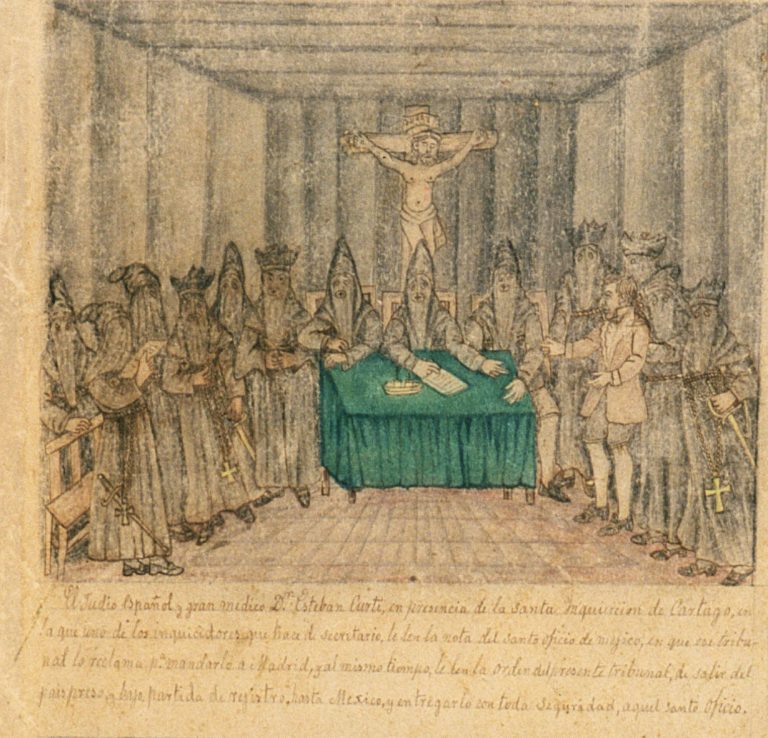 INRI
El Judio Español y gran medico Dn. Esteban Curti, en presencia de la santa Inquicicion de Cartago, en
la que uno de los inquicidores, que hace de secretario, le lee la nota del santo oficio de mejico, en que ese tribu-
nal lo reclama pa. mandarlo a Madrid, y al mismo tiempo, le lee la orden del presente tribunal, de salir del
pais preso, y bajo partida de registro, hasta Mexico, y entregarlo con toda seguridad, aquel santo oficio.